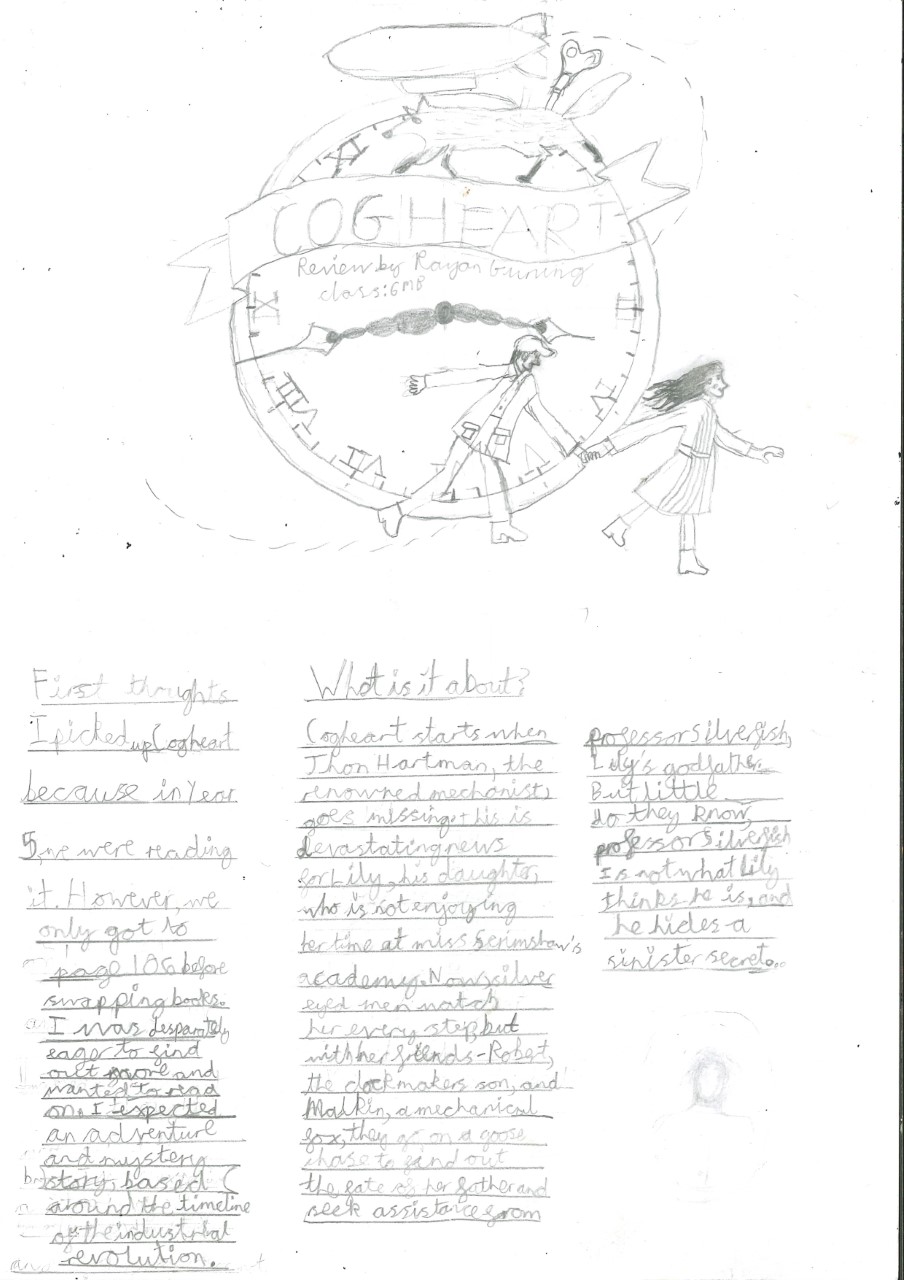 COGHEART
Review by Rayan Guning
class: 6MB
XI
IX
III
VIII
IV
VII
V
First thoughts
I picked up Cogheart
because in Year
5, we were reading
it. However, we
only got to
page 106 before
swapping books.
I was desparately
eager to find
out more and
wanted to read
on. I expected
an adventure
and mystery
story, based
around the timeline
of the industrial
revolution.
What is it about?
Cogheart starts when
Jhon Hartman, the
renowned mechanist,
goes missing. this is
devastating news
for Lily, his daughter,
who is not enjoying
her time at miss Scrimshaw's
academy. Now silver
eyed men watch
her every step, but
with her friends - Robert,
the clockmakers son, and
Malkin, a mechanical
fox, they go on a goose
chase to find out
the fate of her father and
seek assistance from
professor Silverfish,
Lily's godfather.
But little
do they know,
professor Silverfish
Is not what Lily
thinks he is, and
he hides a
sinister secret...